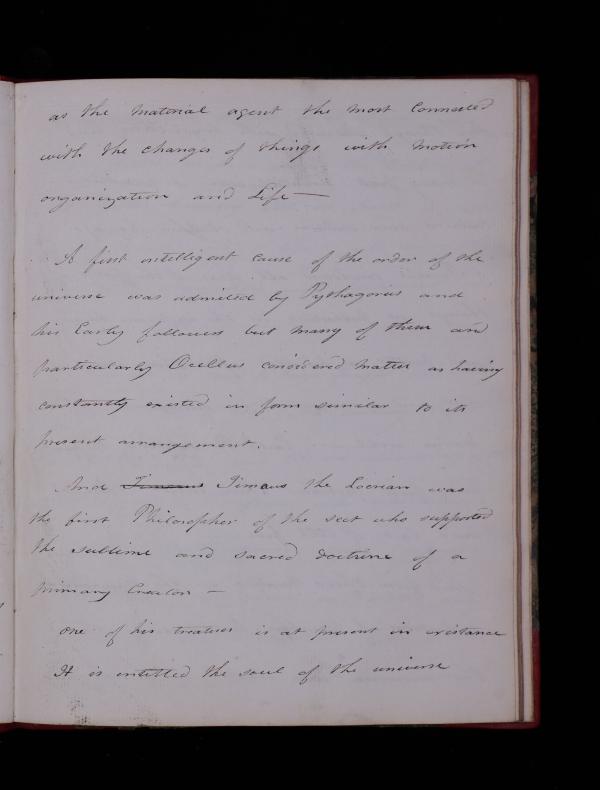 as the material agent the most connected
with the changes of things with motion
organization and Life —
A first intelligent cause of the order of the
universe was admitted by Pythagorus and
his Early followers but many of them and
particularly Ocellus considered matter as having
constantly existed in form similar to its
present arrangement.
And Timaeus Timaus the Locrian was
the first Philosopher of the sect who supported
the sublime and sacred doctrine of a
primary Creator —
one of his treatises is at present in existance
It is entitled the soul of the universe